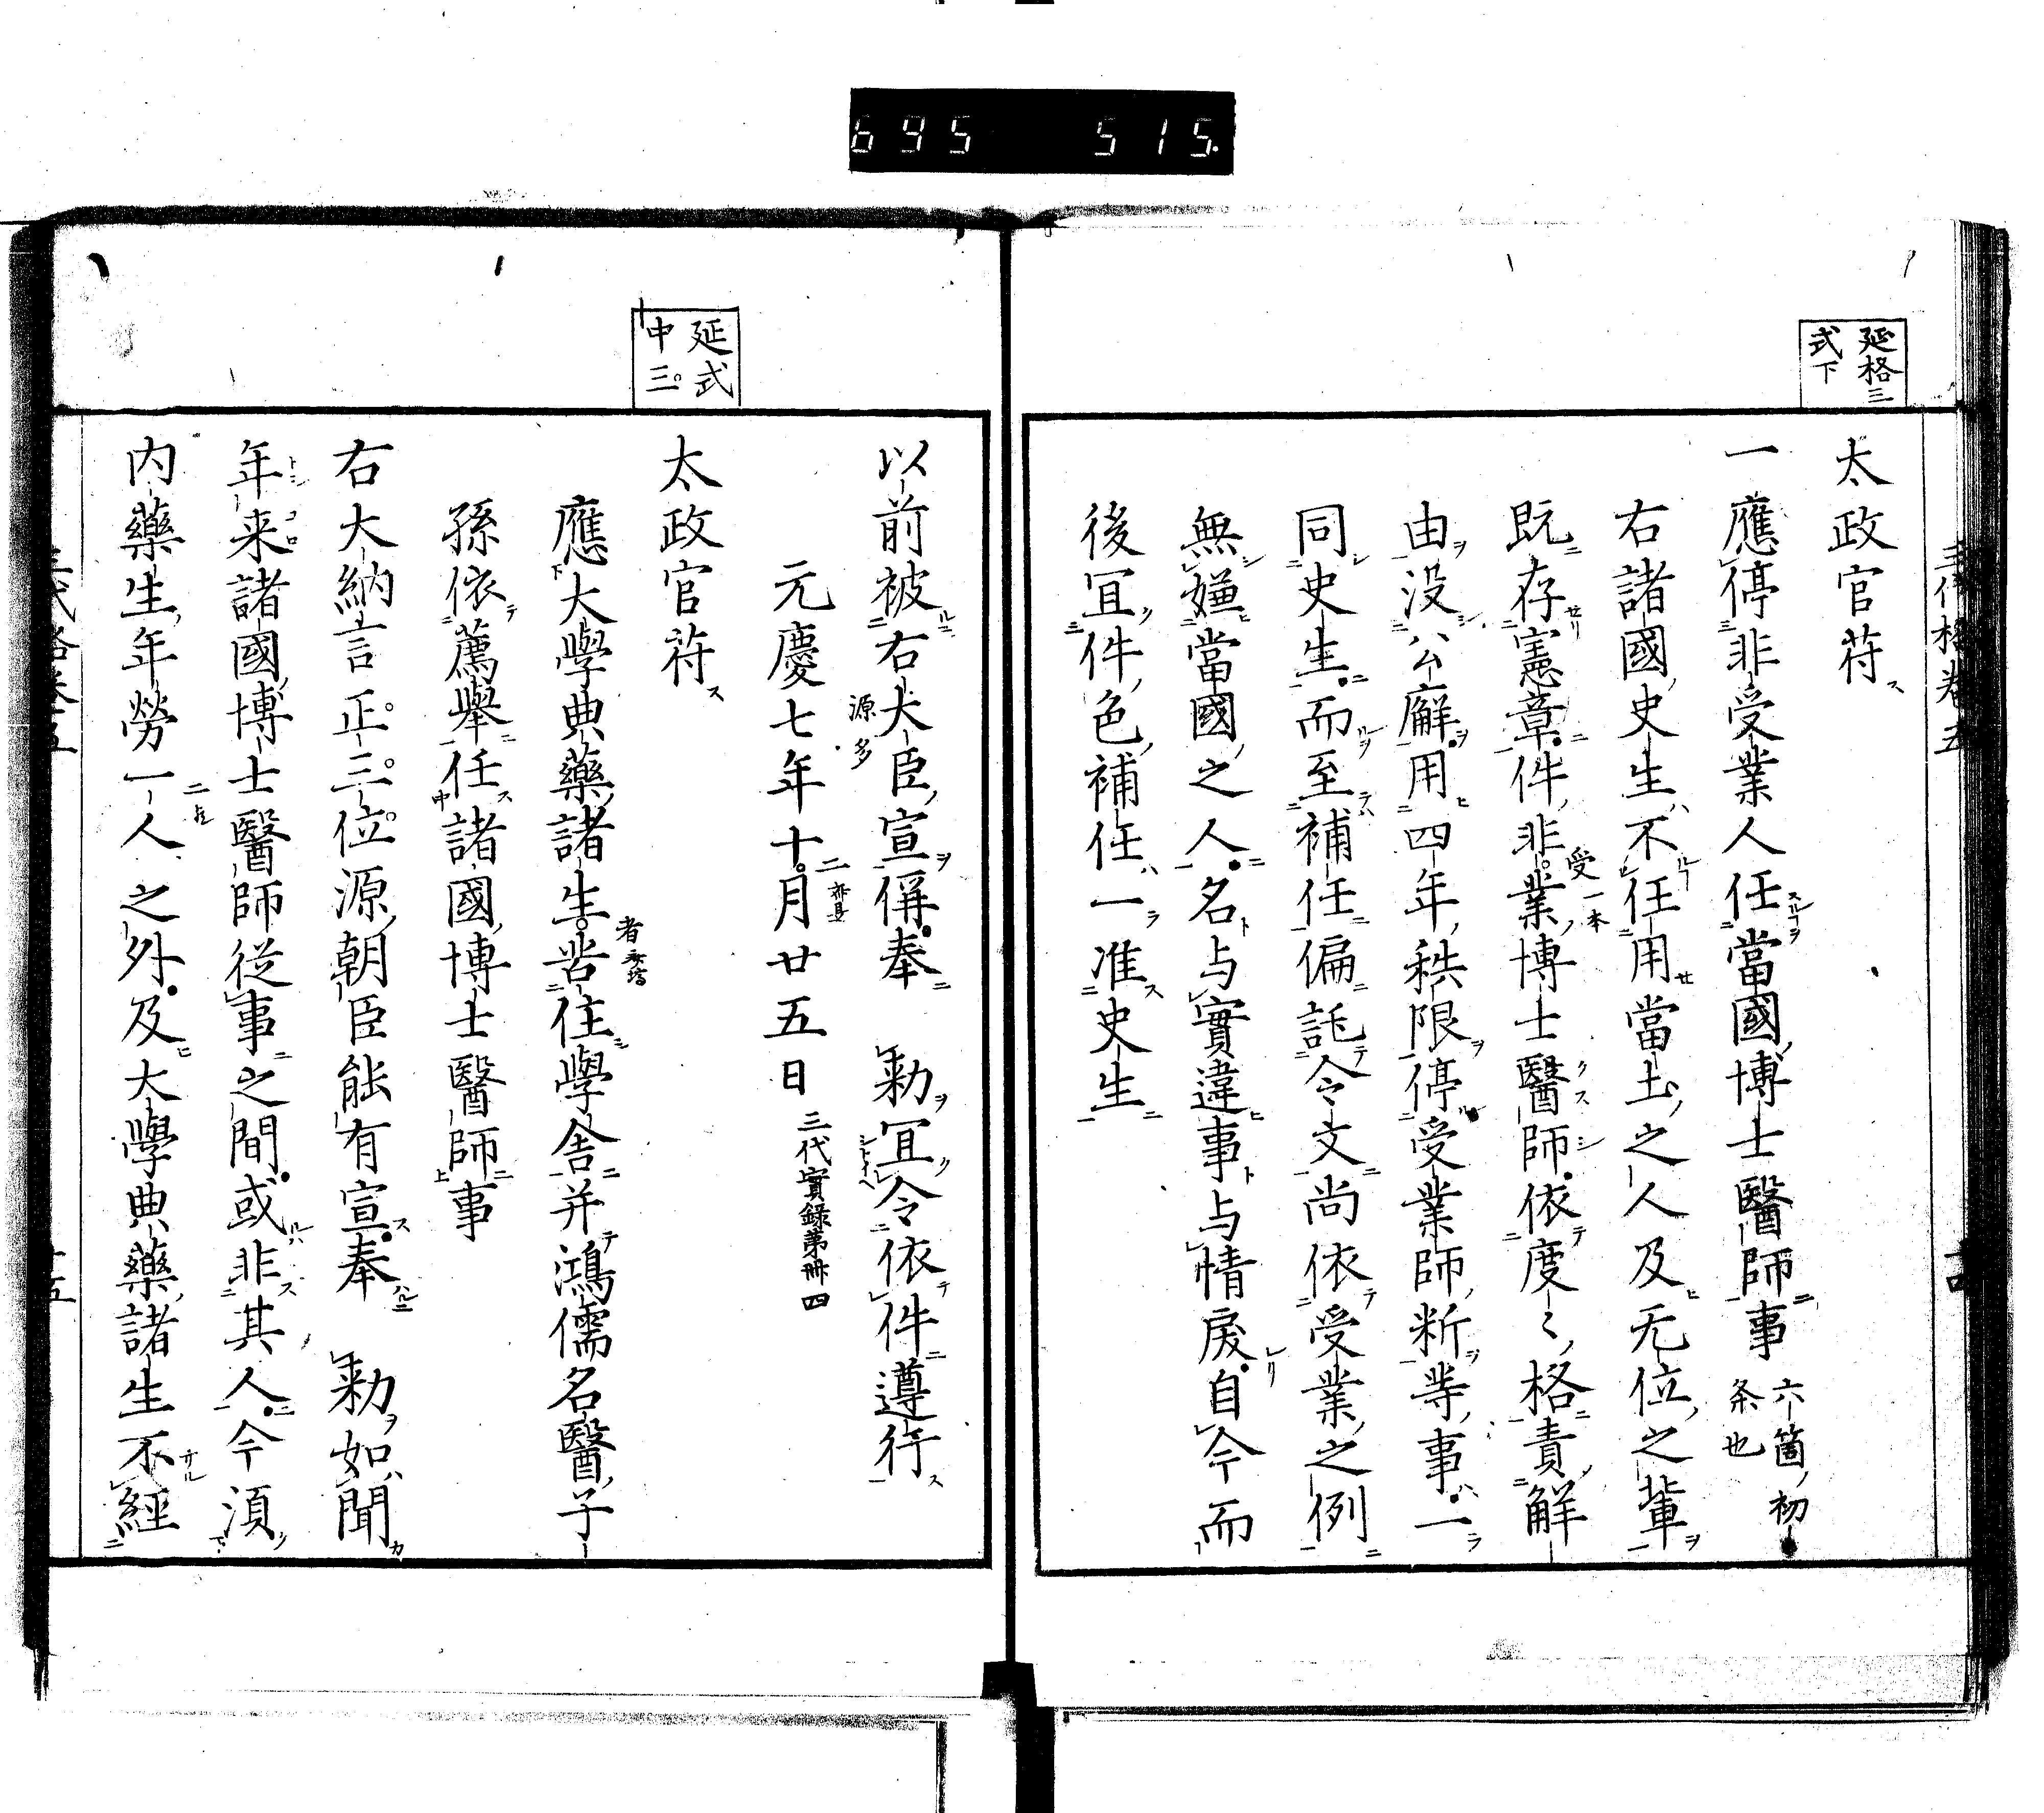 695 515.
延格三
式下
太政官符
一應停非受業人任當國博士醫師事 六箇初
条也
右諸國史生不任用當土之人及无位之輩
既存憲章件非業博士醫師依度〻格責解
受一本
由没公廨用四年秩限停受業師料等事一
同史生而至補任偏託令文尚依受業之例
無嫌當國之人名与實違事与情戻自今而
後冝件色補任一准史生
延式
中三
以前被右大臣宣偁奉 勅冝令依件遵行
源多
元慶七年十月廿五日 三代實録第卌四
太政官符
應大學典藥諸生甞住學舎并鴻儒名醫子
孫依薦舉任諸國博士醫師事
右大納言正三位源朝臣能有宣奉 勅如聞
年来諸國博士醫師従事之間或非其人今湏
内藥生年勞一人之外及大學典藥諸生不經